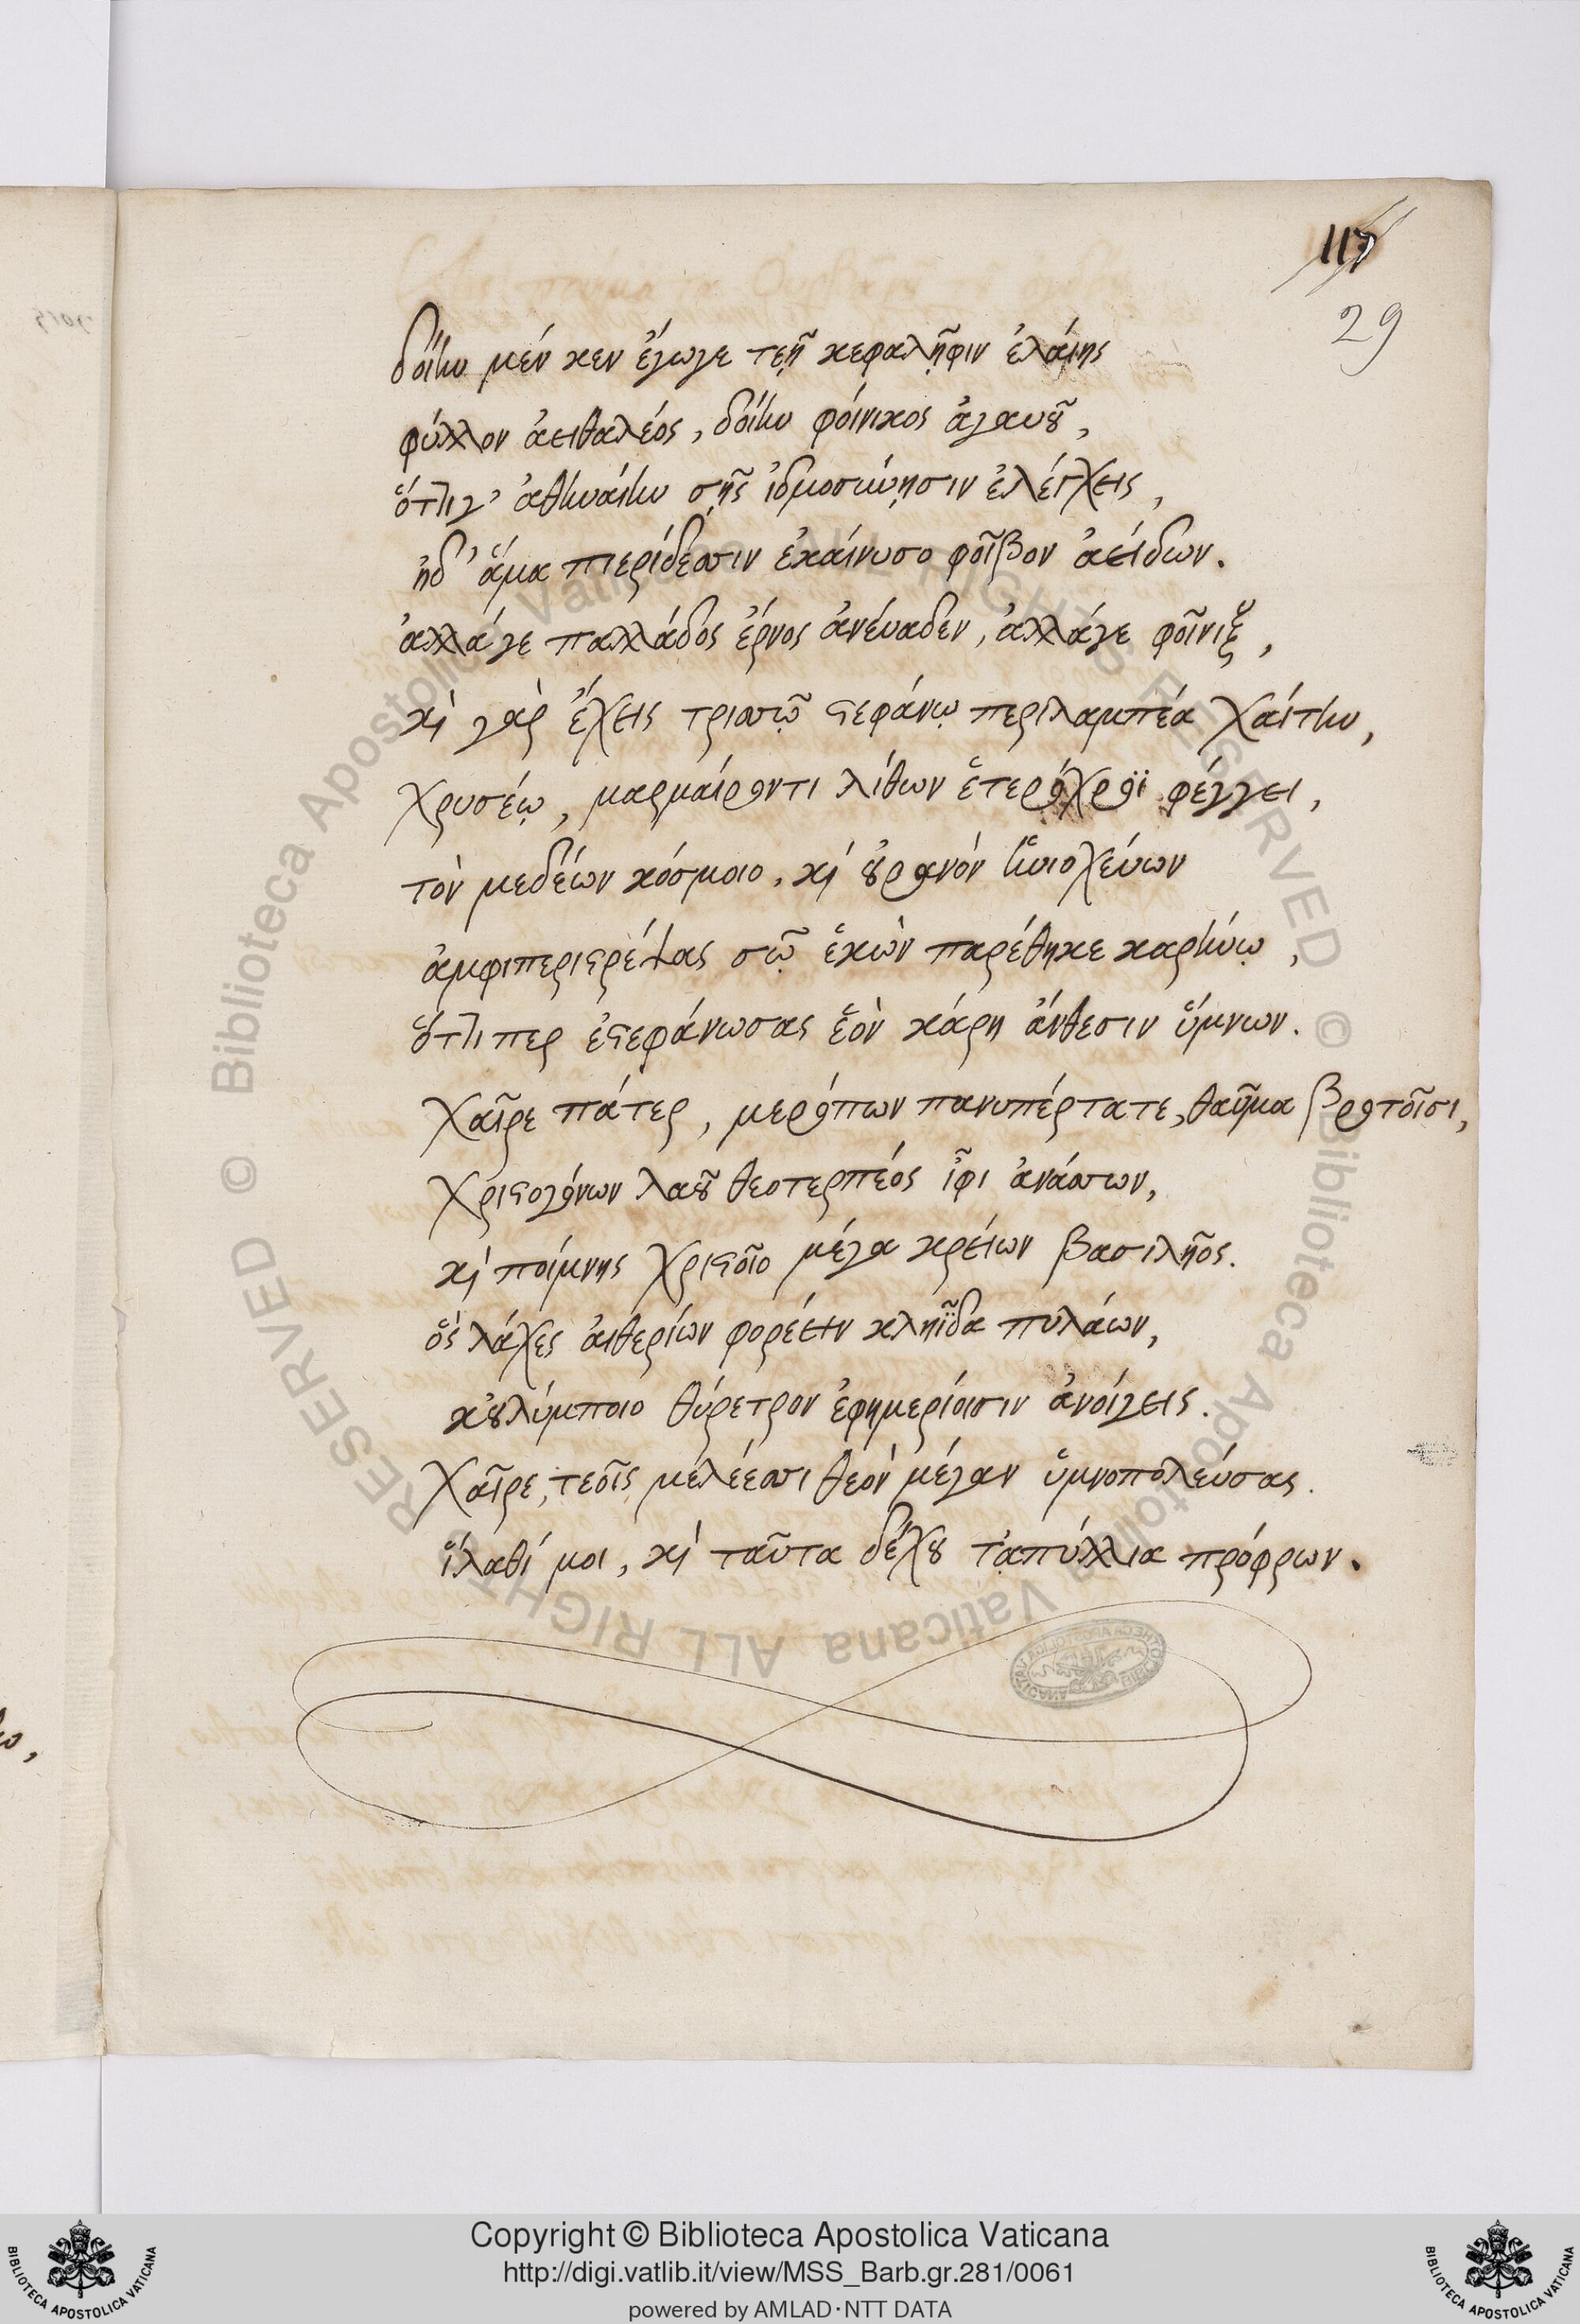 117
29
δοίην μέν κεν ἔγωγε τεῇ κεφαλῇφιν ἐλαίης
φύλλον ἀειθαλέος, δοίην φοίνικος ἀγαυοῦ,
ὅττι γ' ἀθηναίην σῇς ἰδμοσύνῃσιν ἐλέγχεις,
ἠδ' ἅμα πιερίδεσσιν ἐκαίνυσο φοῖβον ἀείδων.
ἀλλά γε παλλάδος ἔρνος ἀνεύαδεν, ἀλλά γε φοῖνιξ,
καὶ γὰρ ἔχεις τρισσῷ στεφάνῳ περιλαμπέα χαίτην,
χρυσέῳ, μαρμαίροντι λίθων ἑτερόχροϊ φέγγει,
τὸν μεδέων κόσμοιο, καὶ οὐρανὸν ἡνιοχεύων
ἀμφιπεριστρέψας σῷ ἑκὼν παρέθηκε καρήνῳ,
ὅττι περ ἐστεφάνωσας ἑὸν κάρη ἄνθεσιν ὕμνων.
χαῖρε πάτερ, μερόπων πανυπέρτατε, θαῦμα βροτοῖσι,
χριστογόνων λαοῦ θεοτερπέος ἶφι ἀνάσσων,
καὶ ποίμνης χριστοῖο μέγα κρείων βασιλῆος.
ὃς λάχες αἰθερίων φορέειν κληῗδα πυλάων,
κοὐλύμποιο θύρετρον ἐφημερίοισιν ἀνοίγεις.
χαῖρε, τεοῖς μελέεσσι θεὸν μέγαν ὑμνοπολεύσας.
ἵλαθί μοι, καὶ ταῦτα δέχου τἀπύλλια πρόφρων.
Copyright © Biblioteca Apostolica Vaticana
http://digi.vatlib.it/view/MSS_Barb.gr.281/0061
powered by AMLAD·NTT DATA
BIBLIOTECA APOSTOLICA VATICANA
BIBLIOTECA APOSTOLICA VATICANA
© Biblioteca Apostolica Vaticana ALL RIGHTS RESERVED © Biblioteca Apostolica Vaticana ALL RIGHTS RESERVED